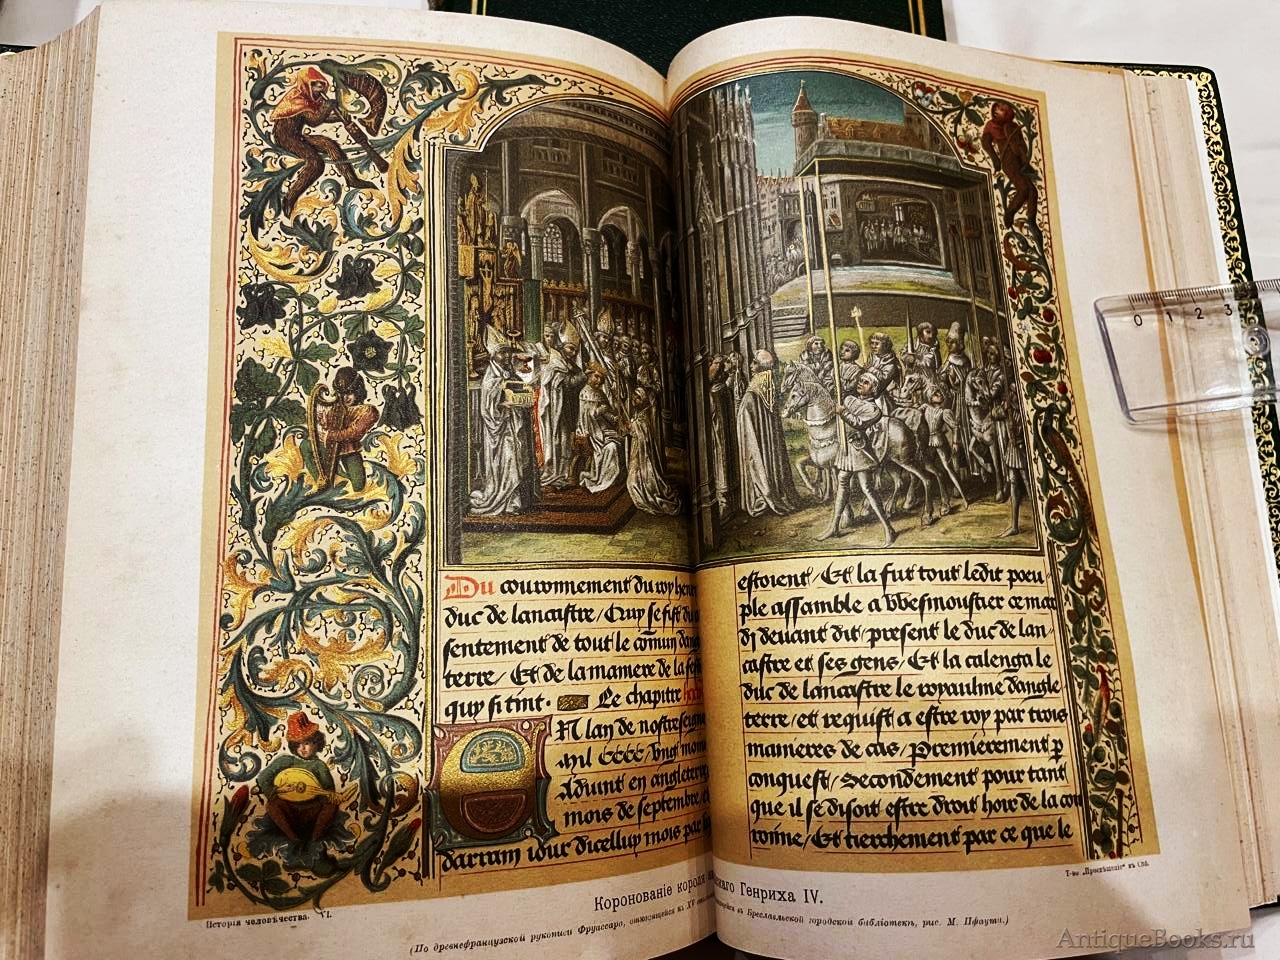 Du couronnement du roy henri
duc de lancastre / Quy se fist du
sentement de tout le commun dan
terre / Et de la maniere de la fest
quy si tint. Le chapitre
En lan de nostre seigne
mil cccc / vng moins
Aduint en angleterre
mois de septembre /
darrain iour dicelluy mois par
estoient / Et la fut tout ledit peu
ple assamble a Wesmoustier ce mar
dj deuant dit / present le duc de lan
castre et ses gens / Et la calenga le
duc de lancastre le royaulme dangle
terre / et requist a estre roy par trois
manieres de cas / Premierement p
conquest / Secondement pour tant
que il se disoit estre droit hoir de la cou
ronne / Et tierchement par ce que le
Исторія человѣчества. VI.
Т-во „Просвѣщеніе“ въ Спб.
Коронованіе короля Генриха IV.
(По древнефранцузской рукописи Фруассара, относящейся къ XV въ Бреславльской городской библіотекѣ, рис. М. Пфаутъ.)
0 1 2 3
AntiqueBooks.ru